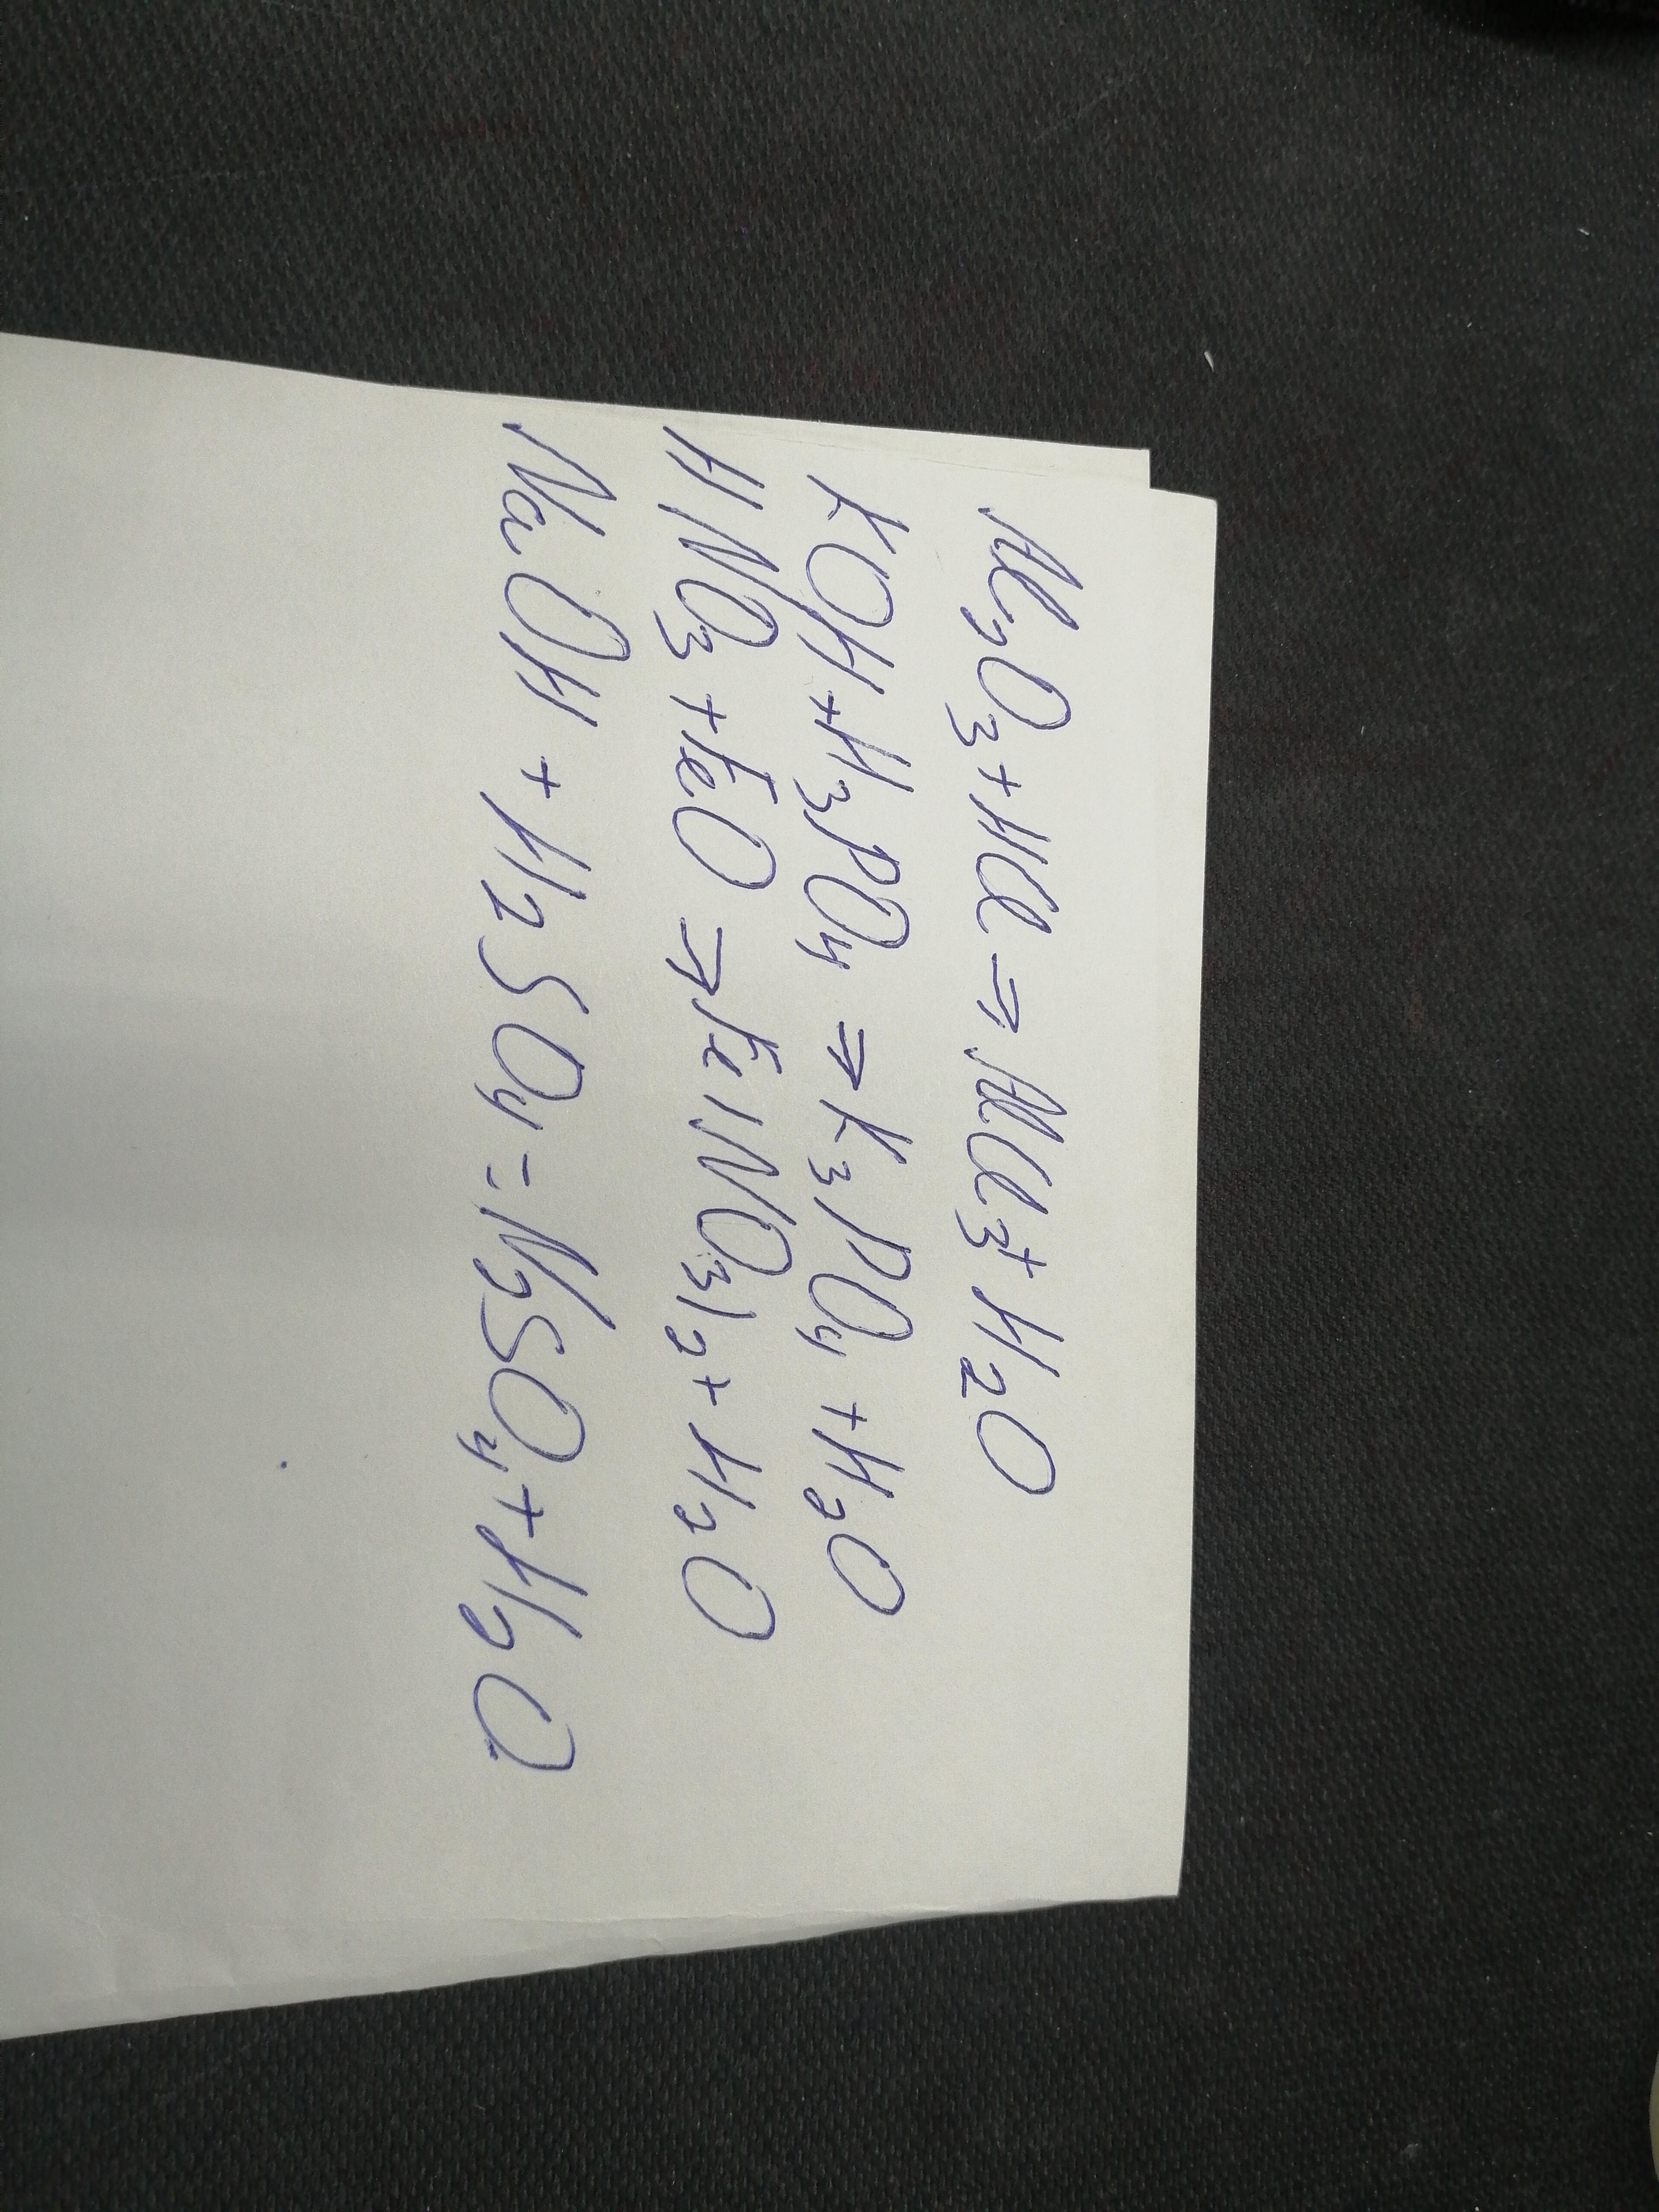 Al₂O₃ + HCl ⇒ AlCl₃ + H₂O
KOH + H₃PO₄ ⇒ K₃PO₄ + H₂O
HNO₃ + FeO ⇒ Fe(NO₃)₂ + H₂O
NaOH + H₂SO₄ = N₂SO₄ + H₂O